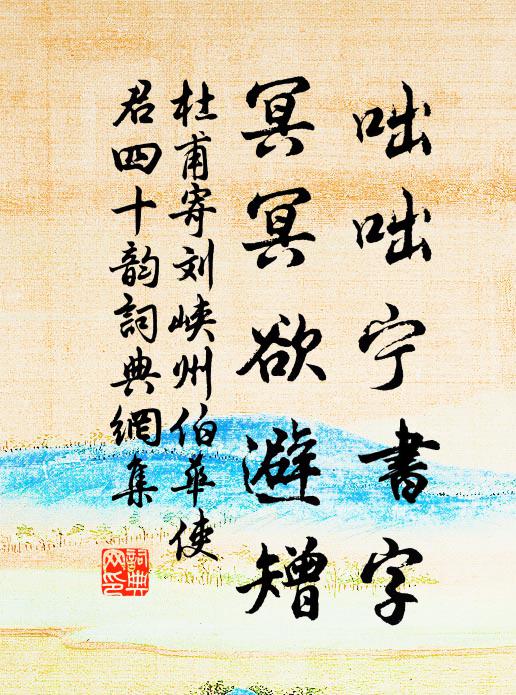 咄咄宁书字
冥冥欲避矰
杜甫寄刘峡州伯华使
君四十韵词典网集
词典网印